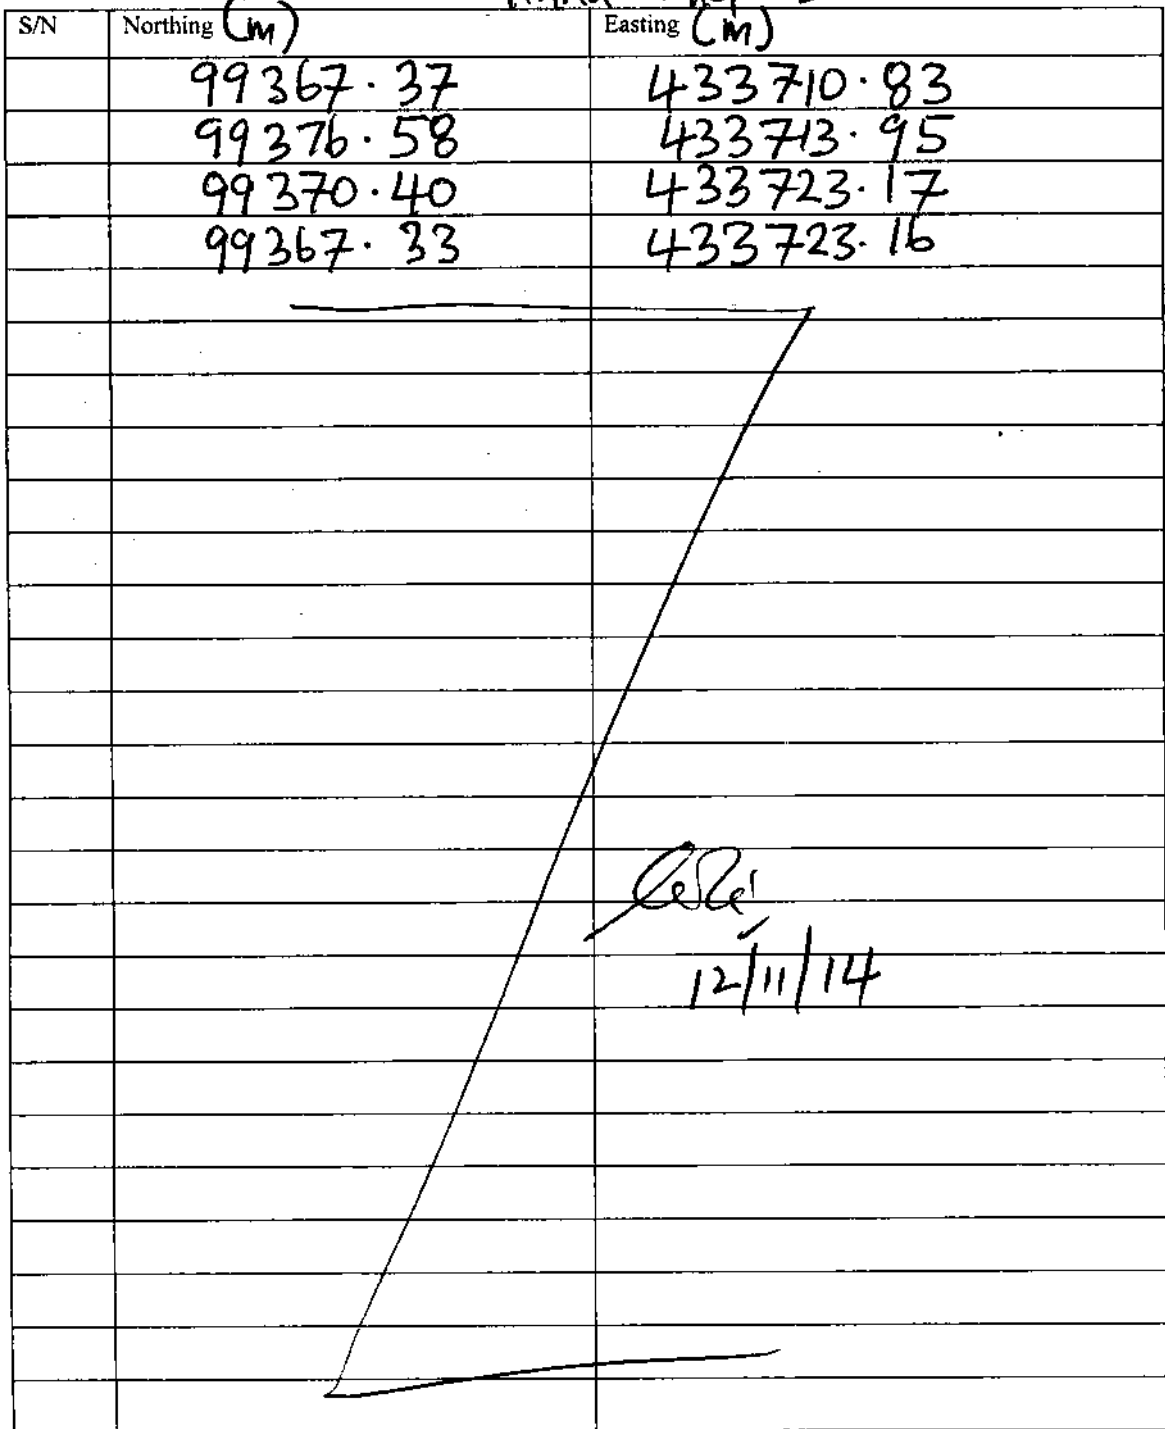 S/N Northing (m) Easting (m)
99367.37 433710.83
99376.58 433713.95
99370.40 433723.17
99367.33 433723.16
12/11/14